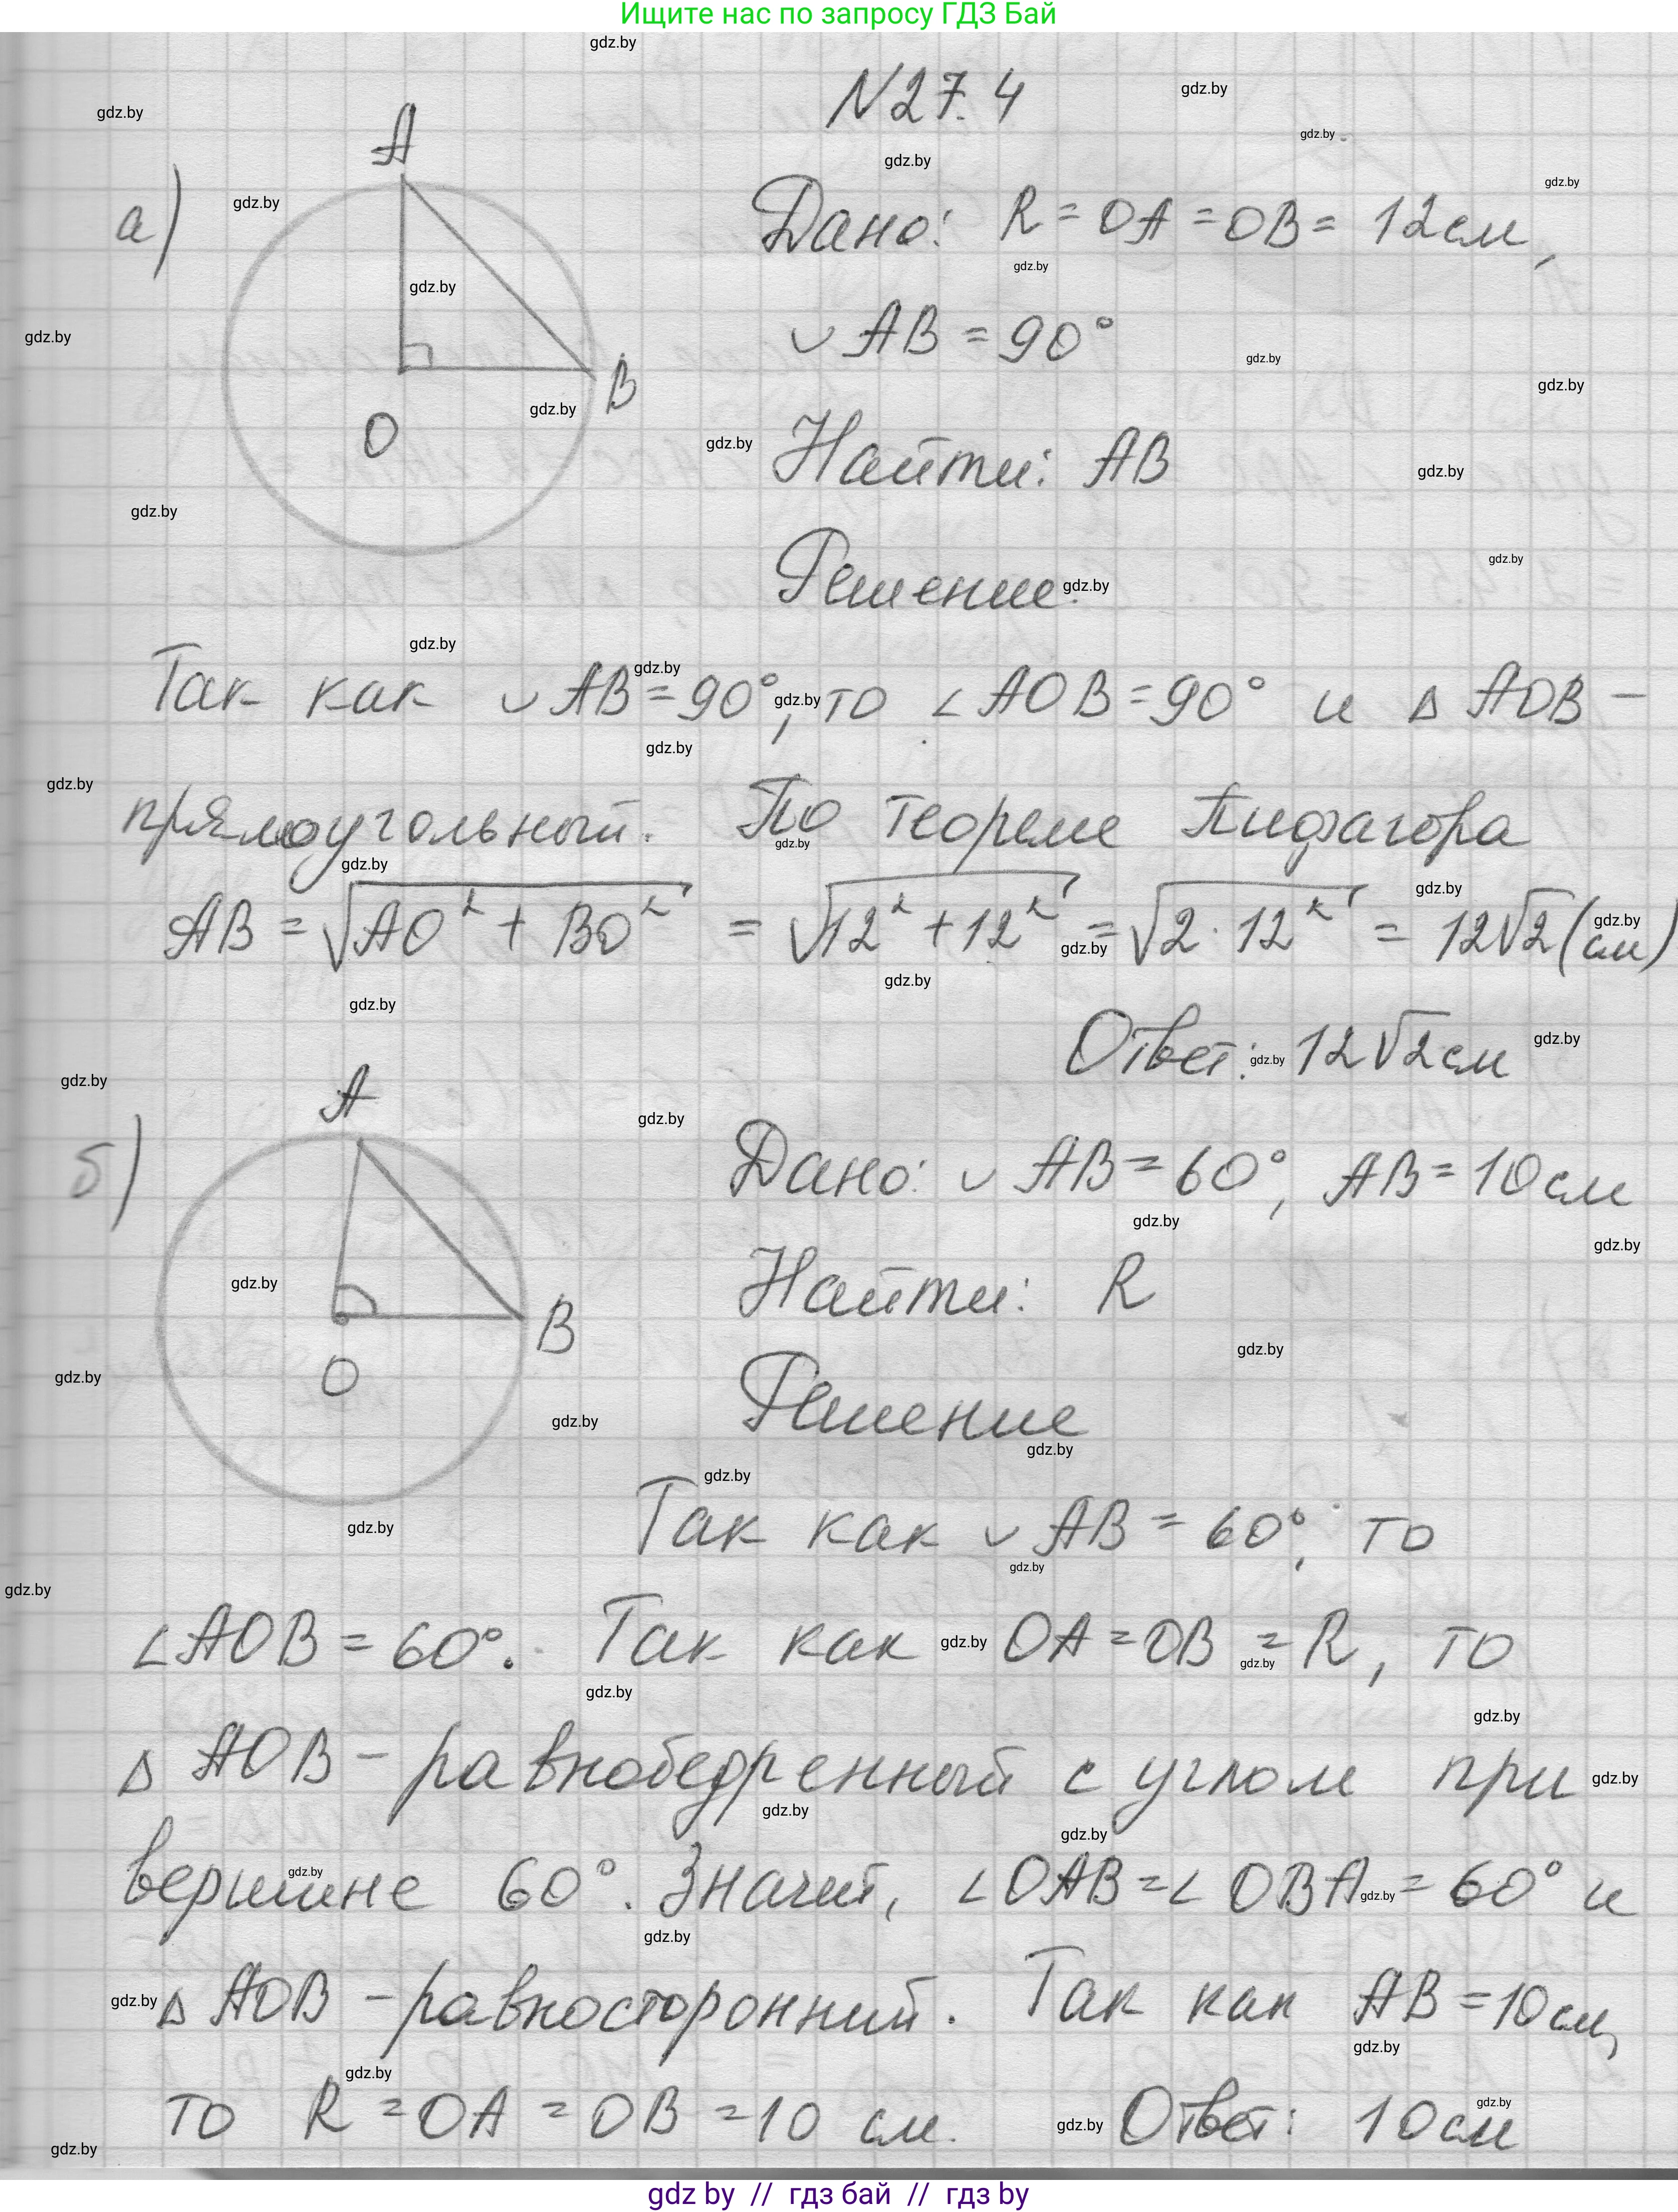 Ищите нас по запросу ГДЗ Бай
N27.4
а)
A
O
B
Дано: R = OA = OB = 12см,
◡ AB = 90°
Найти: AB
Решение.
Так как ◡ AB = 90°, то ∠ AOB = 90° и Δ AOB –
прямоугольный. По теореме Пифагора
AB = √AO² + BO² = √12² + 12² = √2 · 12² = 12√2 (см)
Ответ: 12√2 см
б)
A
O
B
Дано: ◡ AB = 60°, AB = 10 см
Найти: R
Решение
Так как ◡ AB = 60°, то
∠AOB = 60°. Так как OA = OB = R, то
Δ AOB – равнобедренный с углом при
вершине 60°. Значит, ∠OAB = ∠ OBA = 60° и
Δ AOB – равносторонний. Так как AB = 10 см,
то R = OA = OB = 10 см. Ответ: 10 см
gdz by // гдз бай // гдз by